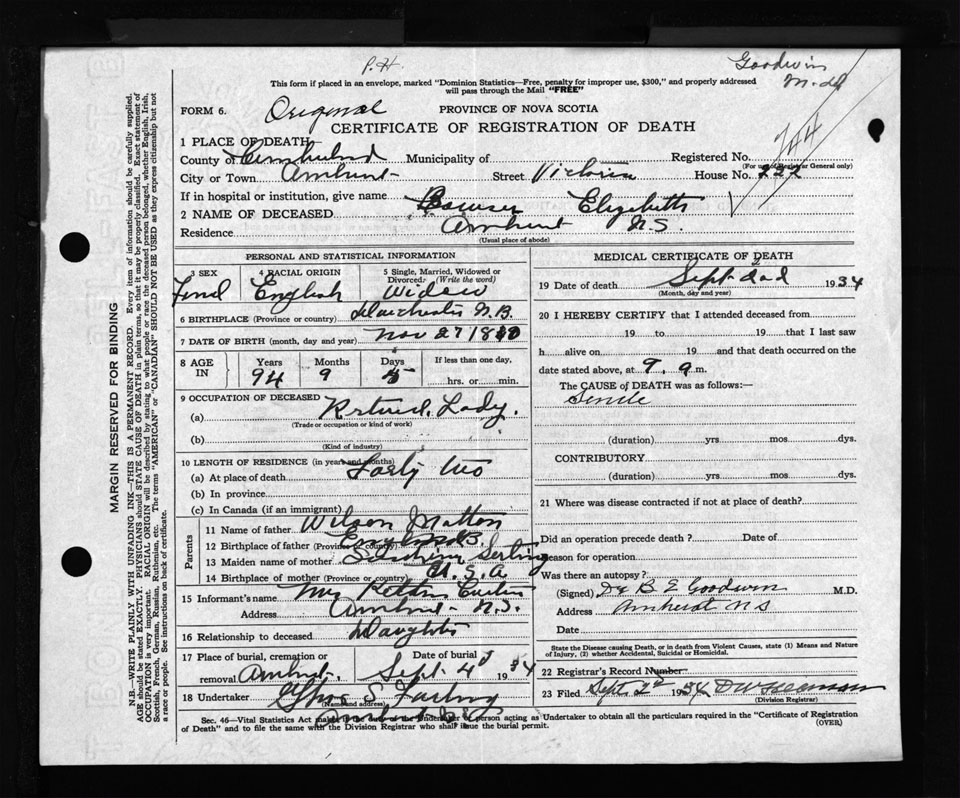 P.H.
Goodwin
M.d
This form if placed in an envelope, marked "Dominion Statistics—Free, penalty for improper use, $300," and properly addressed
will pass through the Mail "FREE"
FORM 6. Original PROVINCE OF NOVA SCOTIA
CERTIFICATE OF REGISTRATION OF DEATH
744
1 PLACE OF DEATH
County of Municipality of Registered No.
(For use of Registrar General only)
City or Town Amherst Street Victoria House No. 222
If in hospital or institution, give name
2 NAME OF DECEASED Bowser Elizabeth
Residence Amherst N.S.
(Usual place of abode)
PERSONAL AND STATISTICAL INFORMATION
3 SEX 4 RACIAL ORIGIN 5 Single, Married, Widowed or
Divorced (Write the word)
English Widow
6 BIRTHPLACE (Province or country) N.B.
7 DATE OF BIRTH (month, day and year) Nov 27
8 AGE IN Years Months Days If less than one day,
94 9 5 hrs. or min.
9 OCCUPATION OF DECEASED
(a) Retired Lady.
(Trade or occupation or kind of work)
(b)
(Kind of industry)
10 LENGTH OF RESIDENCE (in years and months)
(a) At place of death Forty two
(b) In province
(c) In Canada (if an immigrant)
Parents
11 Name of father Wilson
12 Birthplace of father (Province or country)
13 Maiden name of mother
14 Birthplace of mother (Province or country) U.S.A
15 Informant's name
Address Amherst N.S.
16 Relationship to deceased Daughter
17 Place of burial, cremation or Date of burial
removal Amherst, Sept. 4 1934
18 Undertaker
(Name and address)
MEDICAL CERTIFICATE OF DEATH
19 Date of death Sept 2nd 1934
(Month, day and year)
20 I HEREBY CERTIFY that I attended deceased from
19 to 19 that I last saw
h alive on 19 and that death occurred on the
date stated above, at 9. m.
The CAUSE OF DEATH was as follows:—
Senile
(duration) yrs mos dys.
CONTRIBUTORY
(duration) yrs mos dys.
21 Where was disease contracted if not at place of death?
Did an operation precede death? Date of
Reason for operation
Was there an autopsy?
(Signed) Dr B E Goodwin M.D.
Address Amherst NS
Date
State the Disease causing Death, or in death from Violent Causes, state (1) Means and Nature
of Injury, (2) whether Accidental, Suicidal or Homicidal.
22 Registrar's Record Number
23 Filed Sept 1934
(Division Registrar)
Sec. 46—Vital Statistics Act the Undertaker or person acting as Undertaker to obtain all the particulars required in the "Certificate of Registration
of Death" and to file the same with the Division Registrar who shall issue the burial permit. (OVER)
MARGIN RESERVED FOR BINDING
N.B.—WRITE PLAINLY WITH UNFADING INK—THIS IS A PERMANENT RECORD. Every item of information should be carefully supplied.
AGE should be stated EXACTLY. PHYSICIANS should STATE CAUSE OF DEATH in plain terms, so that it may be properly classified. Exact statement of
OCCUPATION is very important. RACIAL ORIGIN will be described by stating to what people or race the deceased person belonged, whether English, Irish,
Scottish, French, German, Russian, Ruthenian, etc. The terms "AMERICAN" or "CANADIAN" SHOULD NOT BE USED as they express citizenship but not
a race or people. See instructions on back of certificate.